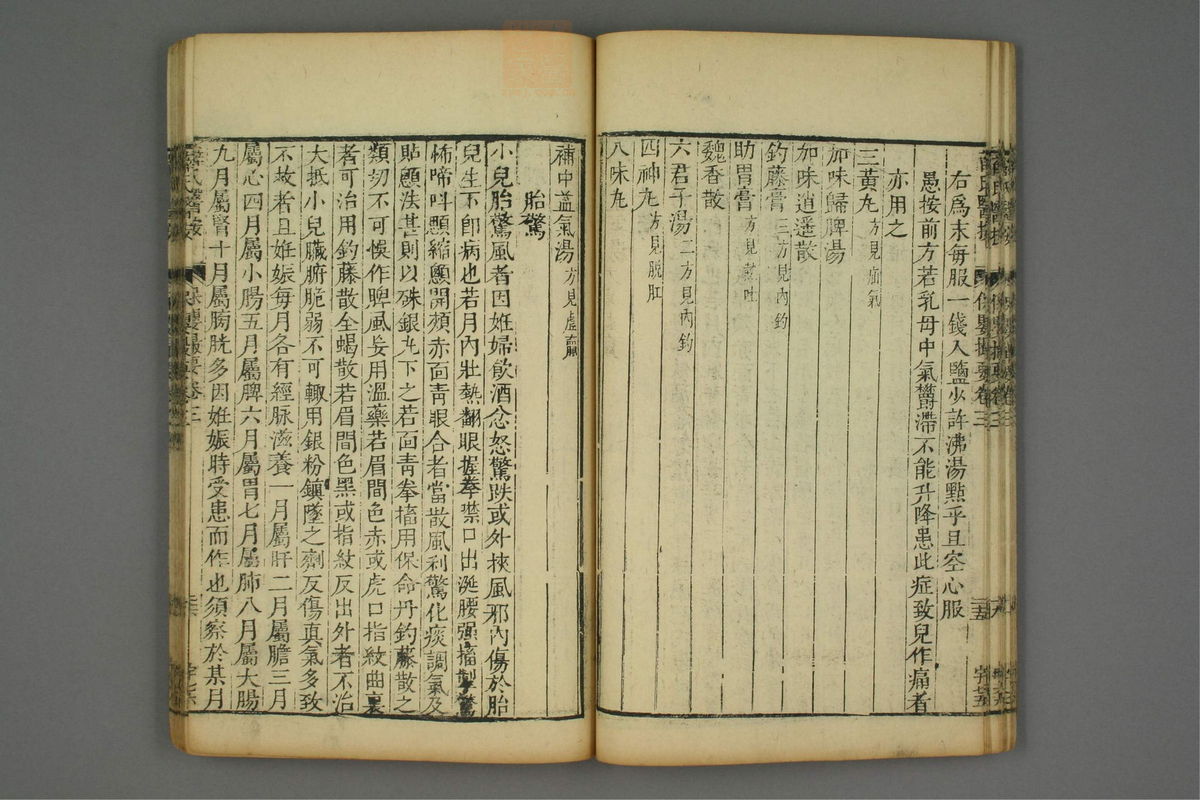 右為末每服一錢入鹽少許沸湯點乎且空心服
愚按前方若乳母中氣欝滯不能升降患此症致兒作痛者
亦用之
三黃丸方見疝氣
加味歸脾湯
加味逍遥散
釣藤膏三方見內釣
助胃膏方見熱吐
魏香散
六君子湯二方見內釣
四神丸方見脫肛
八味丸
補中益氣湯方見虛羸
胎驚
小兒胎驚風者因妊婦飲酒忿怒驚跌或外挾風邪內傷於胎
兒生下即病也若月內壯熱翻眼握拳噤口出涎腰强搐掣驚
怖啼呌顋縮顖開頰赤面青眼合者當散風利驚化痰調氣及
貼顖法甚則以硃銀丸下之若面青拳搐用保命丹釣藤散之
類切不可悞作脾風妄用溫藥若眉間色赤或虎口指紋曲裏
者可治用釣藤散全蝎散若眉間色黑或指紋反出外者不治
大抵小兒臟腑脆弱不可輙用銀粉鎮墜之劑反傷真氣多致
不救者且妊娠每月各有經脉滋養一月屬肝二月屬膽三月
屬心四月屬小腸五月屬脾六月屬胃七月屬肺八月屬大腸
九月屬腎十月屬膀胱多因妊娠時受患而作也須察於某月
薛氏醫按 保嬰撮要卷三